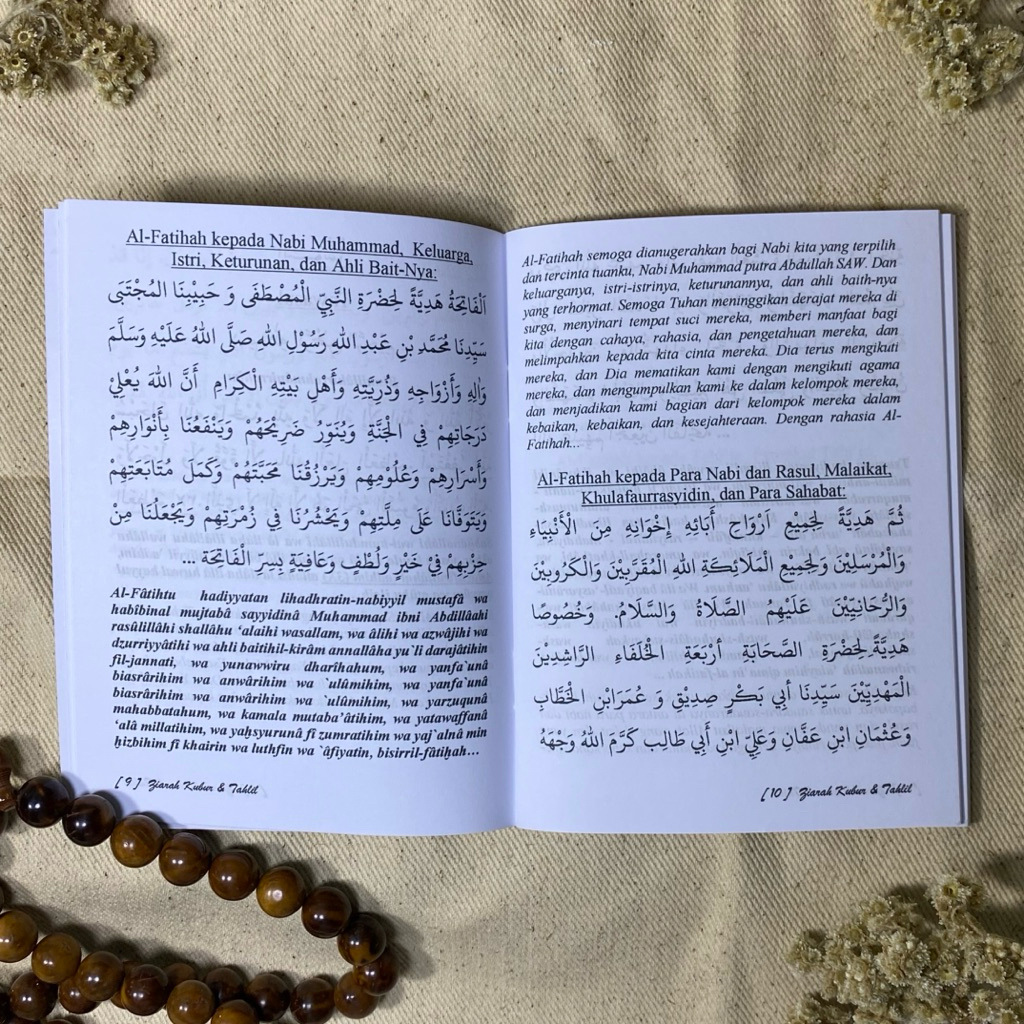 Al-Fatihah kepada Nabi Muhammad, Keluarga,
Istri, Keturunan, dan Ahli Bait-Nya:
اَلْفَاتِحَةُ هَدِيَّةً لِحَضْرَةِ النَّبِيِّ الْمُصْطَفَى وَ حَبِيْبِنَا الْمُجْتَبَى
سَيِّدِنَا مُحَمَّدِ بْنِ عَبْدِ اللهِ رَسُوْلِ اللهِ صَلَّى اللهُ عَلَيْهِ وَسَلَّمَ
وَاٰلِهِ وَأَزْوَاجِهِ وَذُرِّيَّتِهِ وَأَهْلِ بَيْتِهِ الْكِرَامِ أَنَّ اللهَ يُعْلِيْ
دَرَجَاتِهِمْ فِي الْجَنَّةِ وَيُنَوِّرُ ضَرِيْحَهُمْ وَيَنْفَعُنَا بِأَنْوَارِهِمْ
وَأَسْرَارِهِمْ وَعُلُومِهِمْ وَيَرْزُقُنَا مَحَبَّتَهُمْ وَكَمَلَ مُتَابَعَتِهِمْ
وَيَتَوَفَّانَا عَلَى مِلَّتِهِمْ وَيَحْشُرُنَا فِي زُمْرَتِهِمْ وَيَجْعَلُنَا مِنْ
حِزْبِهِمْ فِيْ خَيْرٍ وَلُطْفٍ وَعَافِيَةٍ بِسِرِّ الْفَاتِحَةِ ...
Al-Fâtihtu hadiyyatan lihadhratin-nabiyyil mustafâ wa
habîbinal mujtabâ sayyidinâ Muhammad ibni Abdillâahi
rasûlillâhi shallâhu ‘alaihi wasallam, wa âlihi wa azwâjihi wa
dzurriyyâtihi wa ahli baitihil-kirâm annallâha yu`li darajâtihin
fil-jannati, wa yunawwiru dharîhahum, wa yanfa`unâ
biasrârihim wa anwârihim wa `ulûmihim, wa yanfa`unâ
biasrârihim wa anwârihim wa `ulûmihim, wa yarzuqunâ
mahabbatahum, wa kamala mutaba’âtihim, wa yatawaffanâ
‘alâ millatihim, wa yaḥsyurunâ fî zumratihim wa yaj`alnâ min
ḥizbihim fî khairin wa luthfin wa `âfiyatin, bisirril-fâtiḥah…
[ 9 ] Ziarah Kubur & Tahlil
Al-Fatihah semoga dianugerahkan bagi Nabi kita yang terpilih
dan tercinta tuanku, Nabi Muhammad putra Abdullah SAW. Dan
keluarganya, istri-istrinya, keturunannya, dan ahli baith-nya
yang terhormat. Semoga Tuhan meninggikan derajat mereka di
surga, menyinari tempat suci mereka, memberi manfaat bagi
kita dengan cahaya, rahasia, dan pengetahuan mereka, dan
melimpahkan kepada kita cinta mereka. Dia terus mengikuti
mereka, dan Dia mematikan kami dengan mengikuti agama
mereka, dan mengumpulkan kami ke dalam kelompok mereka,
dan menjadikan kami bagian dari kelompok mereka dalam
kebaikan, kebaikan, dan kesejahteraan. Dengan rahasia Al-
Fatihah...
Al-Fatihah kepada Para Nabi dan Rasul, Malaikat,
Khulafaurrasyidin, dan Para Sahabat:
ثُمَّ هَدِيَّةً لِجَمِيْعِ اَرْوَاحِ أَبَائِهِ إِخْوَانِهِ مِنَ الْأَنْبِيَاءِ
وَالْمُرْسَلِيْنَ وَلِجَمِيْعِ الْمَلَائِكَةِ اللهِ الْمُقَرَّبِيْنَ وَالْكَرُوْبِيْنَ
وَالرُّحَانِيِّيْنَ عَلَيْهِمُ الصَّلَاةُ وَالسَّلَامُ. وَخُصُوصًا
هَدِيَّةً لِحَضْرَةِ الصَّحَابَةِ أَرْبَعَةِ الْخُلَفَاءِ الرَّاشِدِيْنَ
الْمَهْدِيِّيْنَ سَيِّدِنَا أَبِي بَكْرٍ صِدِيْقٍ وَ عُمَرَابْنِ الْخَطَّابِ
وَعُثْمَانِ ابْنِ عَفَّانِ وَعَلِيِّ ابْنِ أَبِي طَالِب كَرَّمَ اللهُ وَجْهَهُ
[ 10 ] Ziarah Kubur & Tahlil